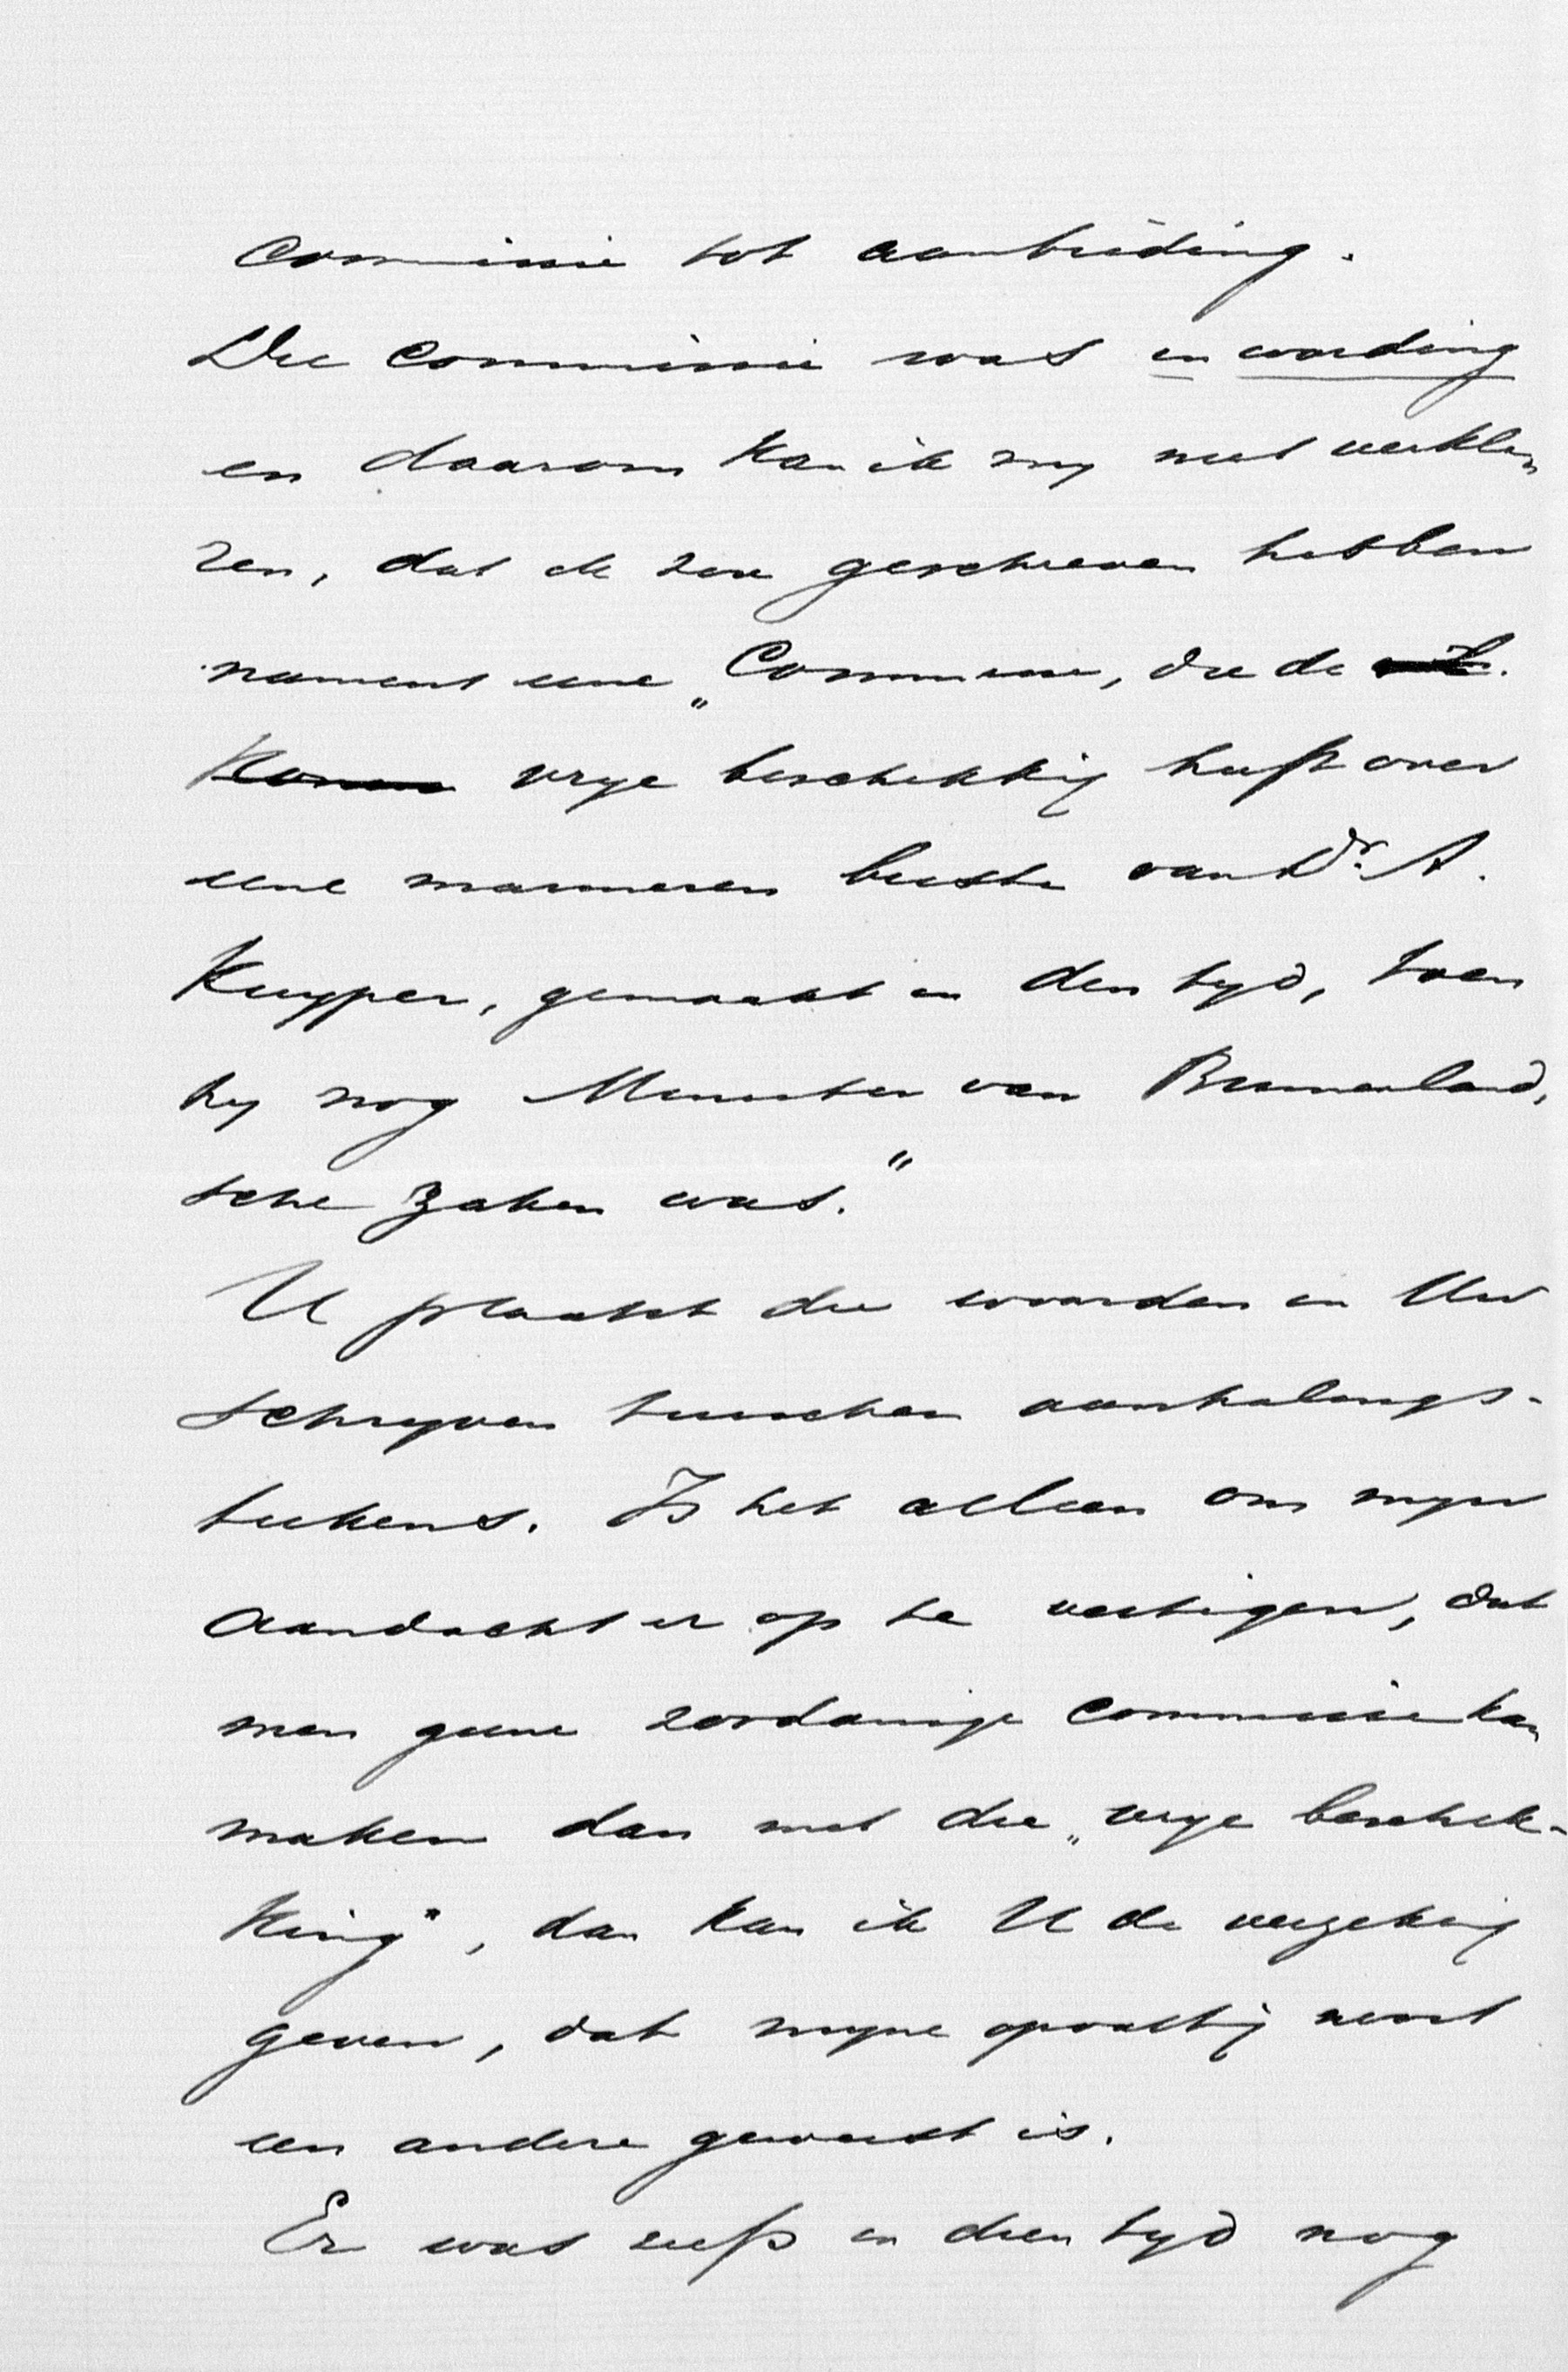 Commissie tot aanbieding.
Die Commissie was in wording
en daarom kan ik my niet verkla-
ren, dat ik zou geschreven hebben
namens eene „Commissie, die de
vrye beschikking heeft over
eene marmeren buste van Dr. A.
Kuyper, gemaakt in den tyd, toen
hy nog Minister van Binnenland,
sche Zaken was."
U plaatst die woorden in Uw
schryven tusschen aanhalings-
teekens. Is het alleen om myn
aandacht er op te vestigen, dat
men geene zoodanige Commissie kan
maken dan met die „vrye beschik-
king", dan kan ik U de verzekering
geven, dat myne opvatting nooit
een andere geweest is.
Er was zelfs in dien tyd nog